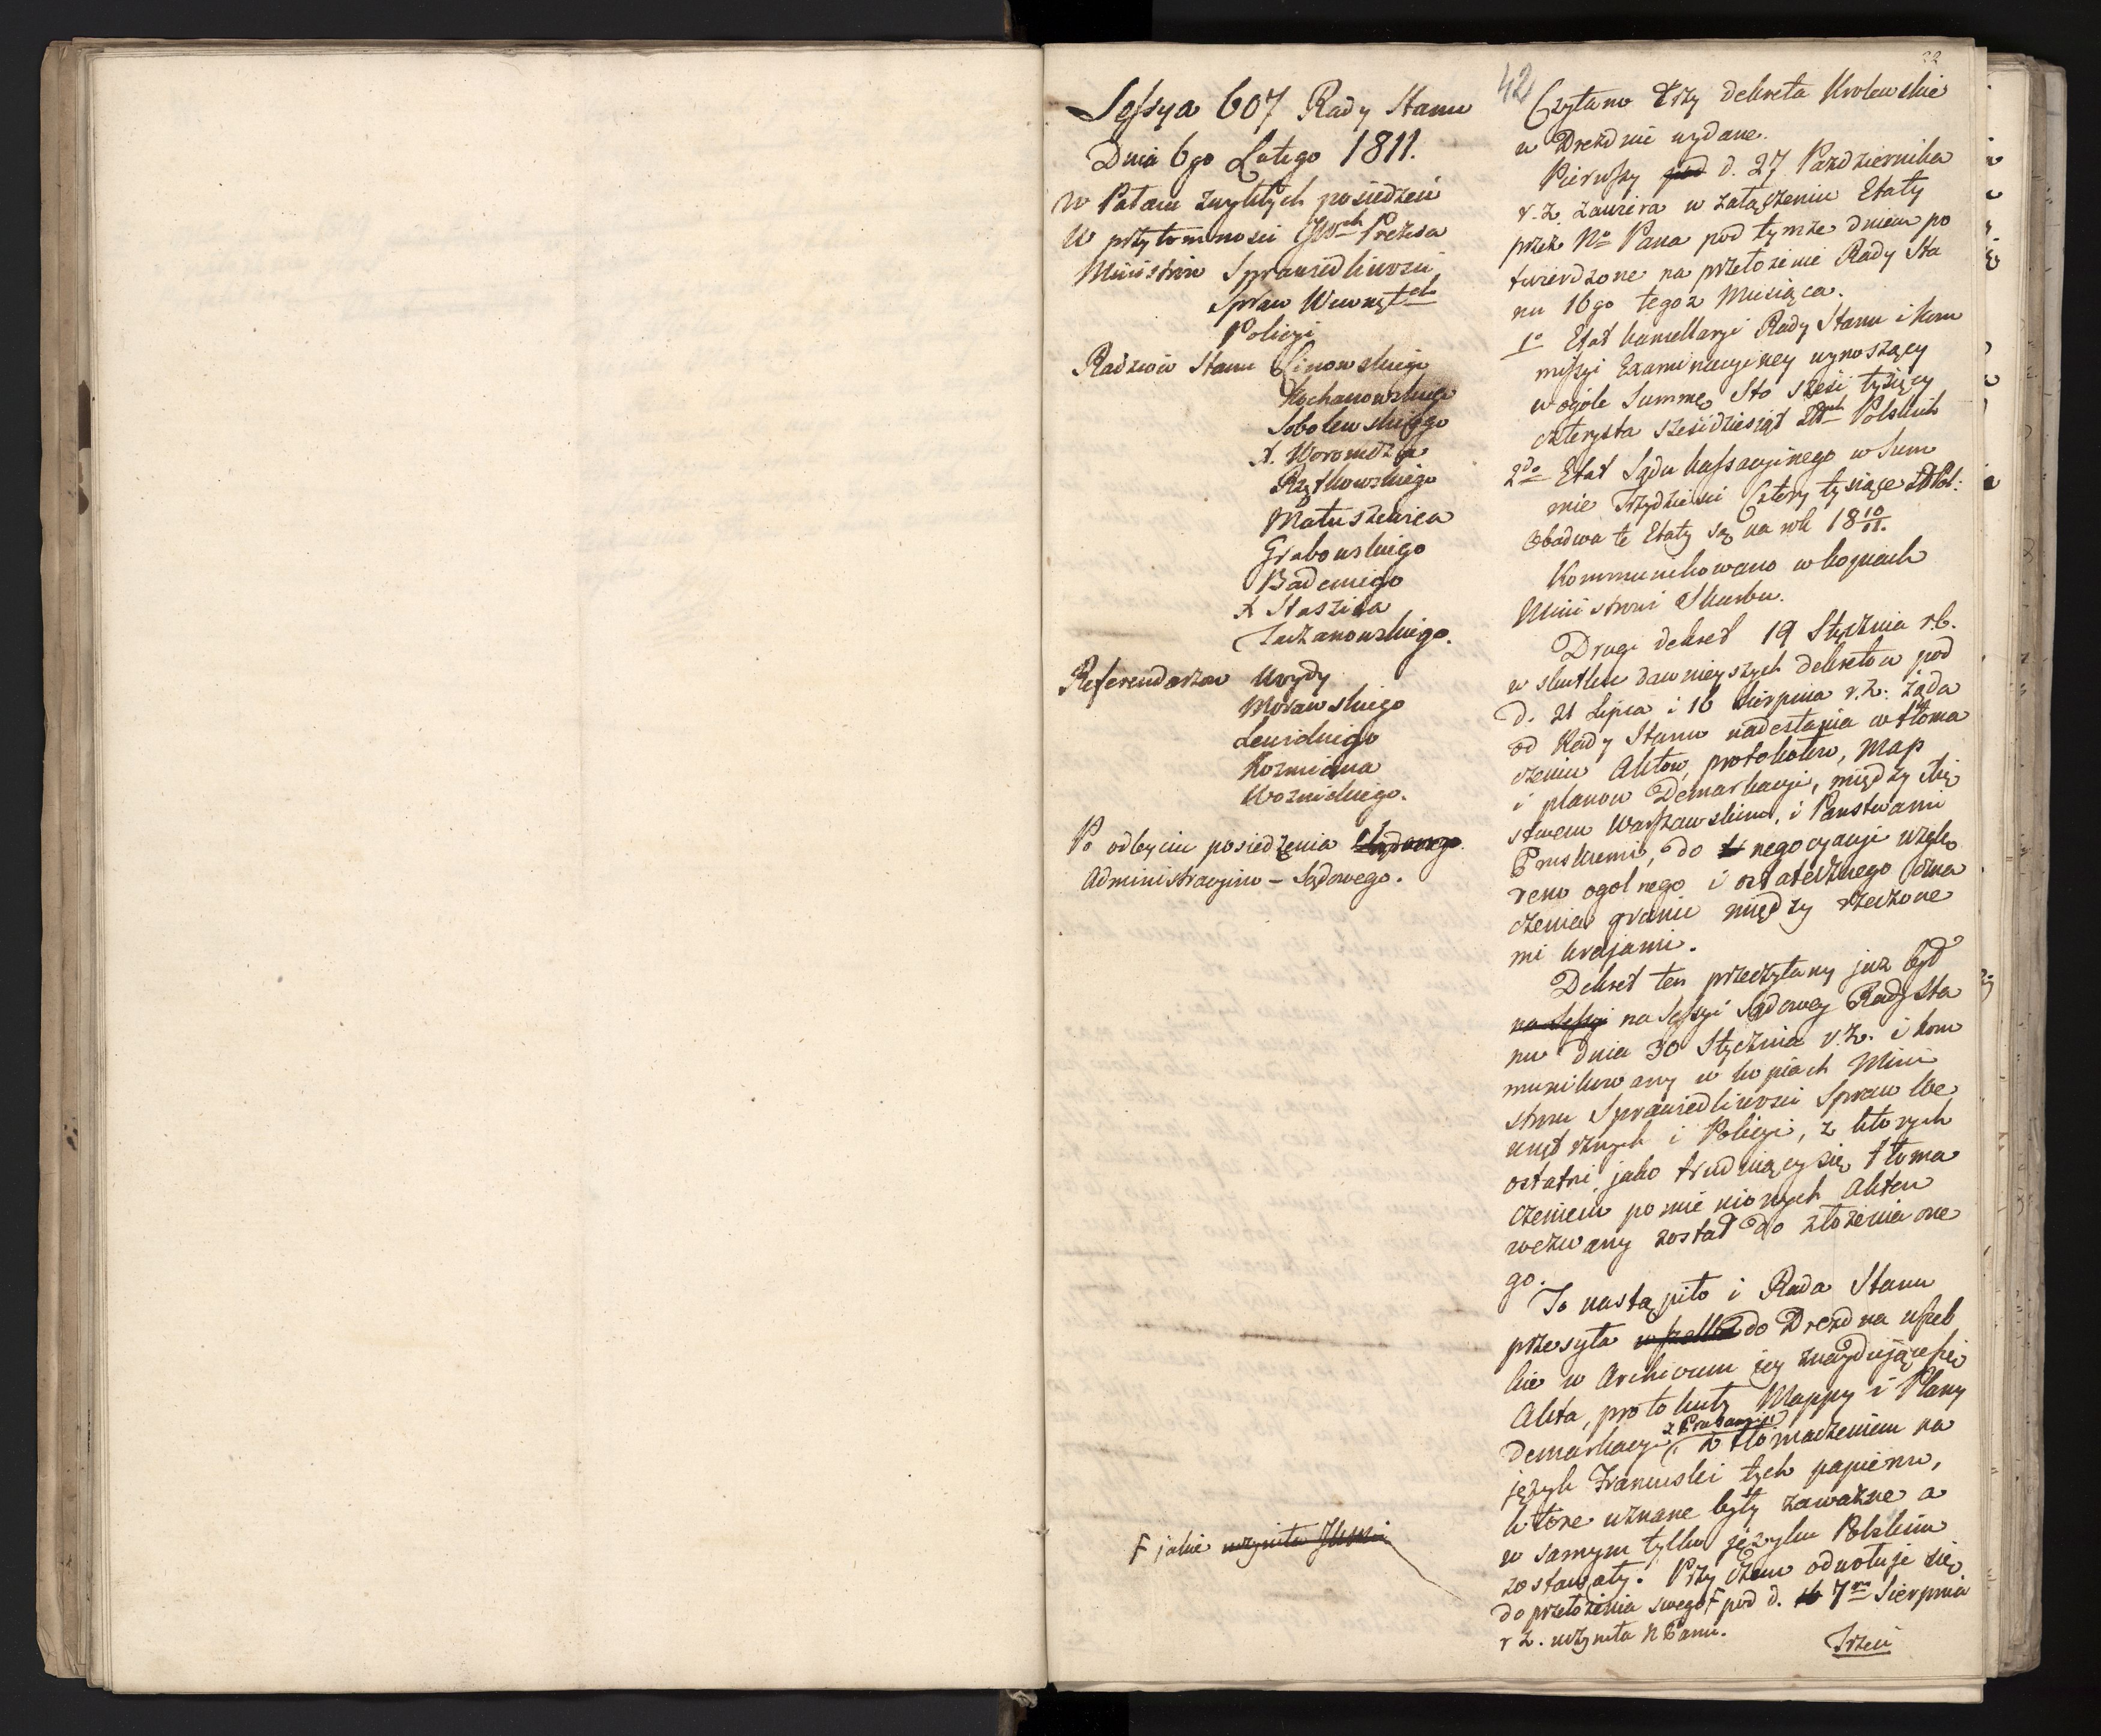 Sessya 607 Rady Stanu
Dnia 6go Lutego 1811.
W Pałacu zwykłych posiedzeń
W przytomności JW<sup>ch</sup> Prezesa
Ministrów Sprawiedliwości
Spraw Wewnęt<sup>ch</sup>
Policyi
Radzców Stanu Linowskiego
Kochanowskiego
Sobolewskiego
X. Woronicza
Matuszewica
Grabowskiego
Badeniego
X Staszica
Referendarzow Wyędy
Morawskiego
Lewickiego
Kozmiana
Woznickiego.
Po odbyciu posiedzenia
Administracyino - Sądowego.
F jakie uczyniła
32
42
Czytano trzy dekreta Krolewskie
w Dreźnie wydane.
Pierwszy pod d. 27 Pazdziernika
r. z. zawiera w załączeniu Etaty
przez N<sup>o</sup> Pana pod tymże dniem po
twierdzone na przełożenie Rady Sta
nu 16go tegoż Miesiąca.
1<sup>o</sup> Etat kancellaryi Rady Stanu i kom
missyi Examinacyiney wynoszący
w ogole Summę Sto szesć tysięcy
czterysta sześćdziesiąt Zł<sup>ch</sup> Polskich
2<sup>do</sup> Etat Sądu kassacyinego w Sum
mie Trzydzieści Cztery tysiące Zł Pol:
Obadwa te Etaty są na rok 18 10/11.
Kommunikowano w kopiach
Ministrowi Skarbu.
Drugi dekret 19 Stycznia r.b.
w skutku dawnieyszych dekretow pod
d. 21 Lipca i 16 Sierpnia r. z. żąda
od Rady Stanu nadesłania w tłoma
czeniu Aktow, protokołow, Map
i planow Demarkacyi, między Xię
stwem Warszawskiem, i Panstwami
Pruskiemi, do negocyacyi wzglę
dem ogolnego i ostatecznego ozna
czenia granic między rzeczone
mi krajami.
Dekret ten przeczytany już był
na Sessyi na Sessyi Sądowey Rady Sta
nu dnia 30 Stycznia r. z. i kom
munikowany w kopiach Mini
strom Sprawiedliwości Spraw We
wnętrznych i Policyi, z ktorych
ostatni jako trudniący się tłoma
czeniem pomienionych Aktow
wezwany został do złożenia one
go.
To nastąpiło i Rada Stanu
przesyła do Drezdna wszel
kie w Archivum iey znayduiące się
Akta, protokuły Mappy i Plany
demarkacyi z Prusami i z tłomaczeniem na
język Francuski tych papierow,
ktore uznane były za ważne a
w samym tylko języku Polskim
zostawały. Przy czem odwołuje się
do przełożenia swego F pod d. 7<sup>m</sup> Sierpnia
r z. uczyniła N Panu.
Trzeci